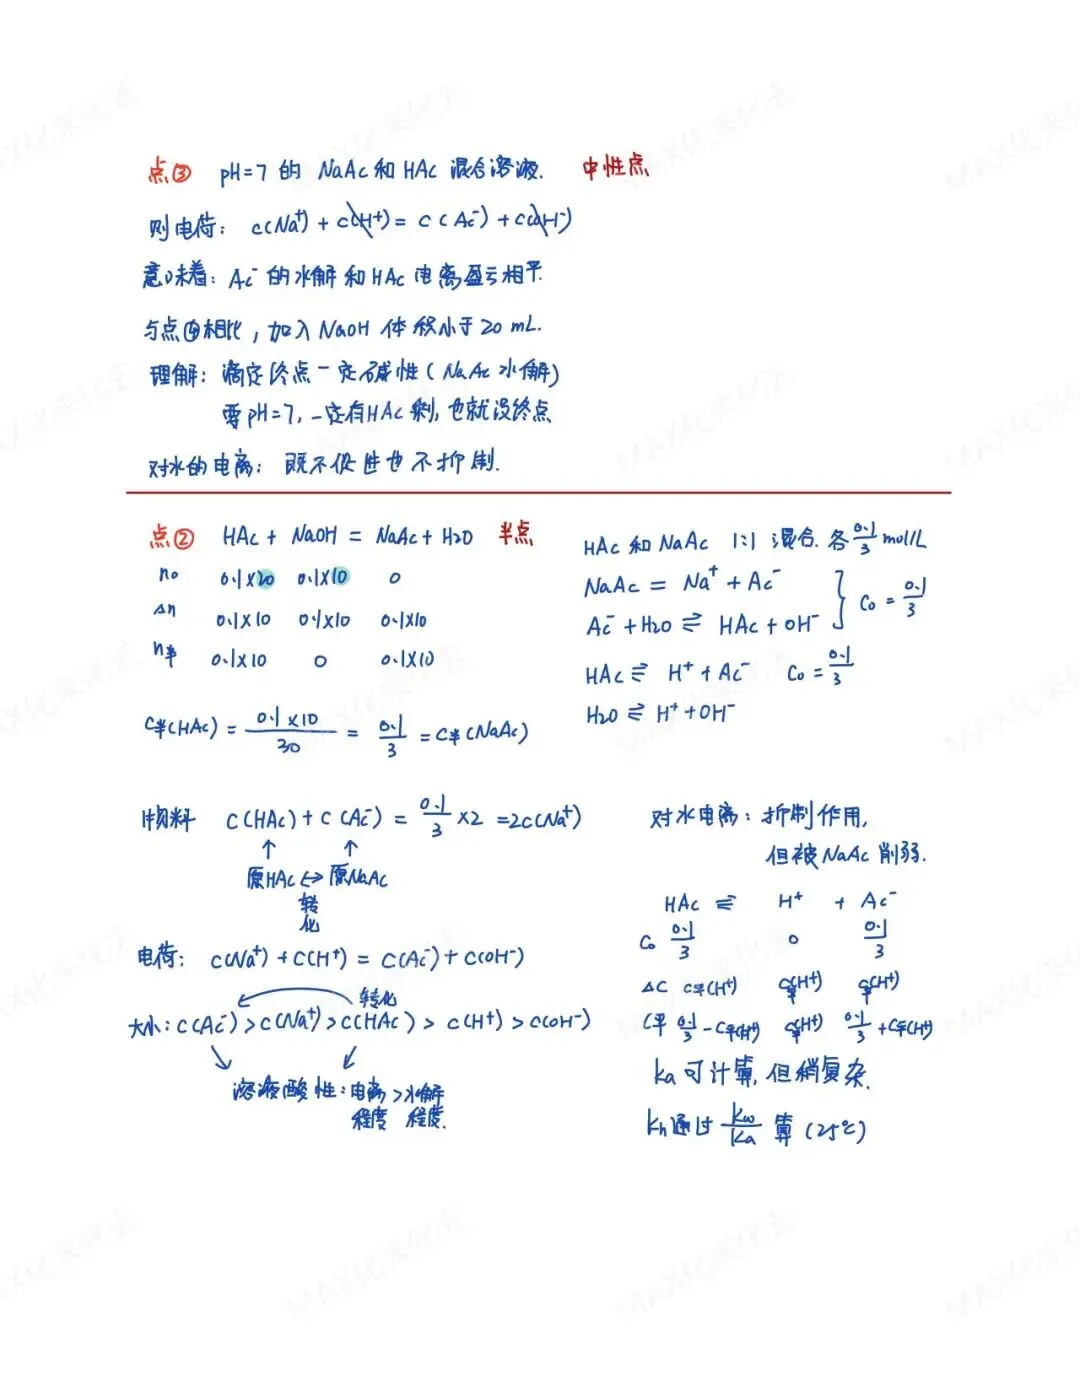 点③ pH=7 的 NaAc和HAc 混合溶液. 中性点
则电荷: c(Na⁺) + c(H⁺) = c(Ac⁻) + c(OH⁻)
意味着: Ac⁻ 的水解和HAc 电离盈亏相平.
与点④相比, 加入 NaOH 体积小于 20 mL.
理解: 滴定终点一定碱性 (NaAc 水解)
要 pH=7, 一定有HAc 剩, 也就没终点
对水的电离: 既不促进也不抑制.
点② HAc + NaOH = NaAc + H₂O 半点
n₀ 0.1×20 0.1×10 0
Δn 0.1×10 0.1×10 0.1×10
n半 0.1×10 0 0.1×10
c半(HAc) = 0.1×10/30 = 0.1/3 = c半(NaAc)
HAc 和 NaAc 1:1 混合. 各 0.1/3 mol/L
NaAc = Na⁺ + Ac⁻
Ac⁻ + H₂O ⇌ HAc + OH⁻ } C₀ = 0.1/3
HAc ⇌ H⁺ + Ac⁻ C₀ = 0.1/3
H₂O ⇌ H⁺ + OH⁻
物料 c(HAc) + c(Ac⁻) = 0.1/3 ×2 = 2c(Na⁺)
↑ ↑
原HAc ↔ 原NaAc
转
化
电荷: c(Na⁺) + c(H⁺) = c(Ac⁻) + c(OH⁻)
转化
大小: c(Ac⁻) > c(Na⁺) > c(HAc) > c(H⁺) > c(OH⁻)
溶液酸性: 电离 > 水解
程度 程度.
对水电离: 抑制作用,
但被 NaAc 削弱.
HAc ⇌ H⁺ + Ac⁻
C₀ 0.1/3 0 0.1/3
ΔC c平(H⁺) c平(H⁺) c平(H⁺)
C平 0.1/3 - c平(H⁺) c平(H⁺) 0.1/3 + c平(H⁺)
Ka 可计算, 但稍复杂.
Kh 通过 Kw/Ka 算 (25℃)
MAX化来化去